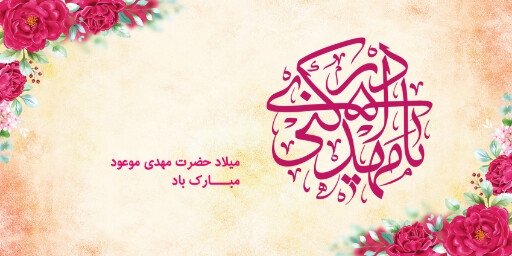 یا مهدی ادرکنی
میلاد حضرت مهدی موعود
مبـــارک باد